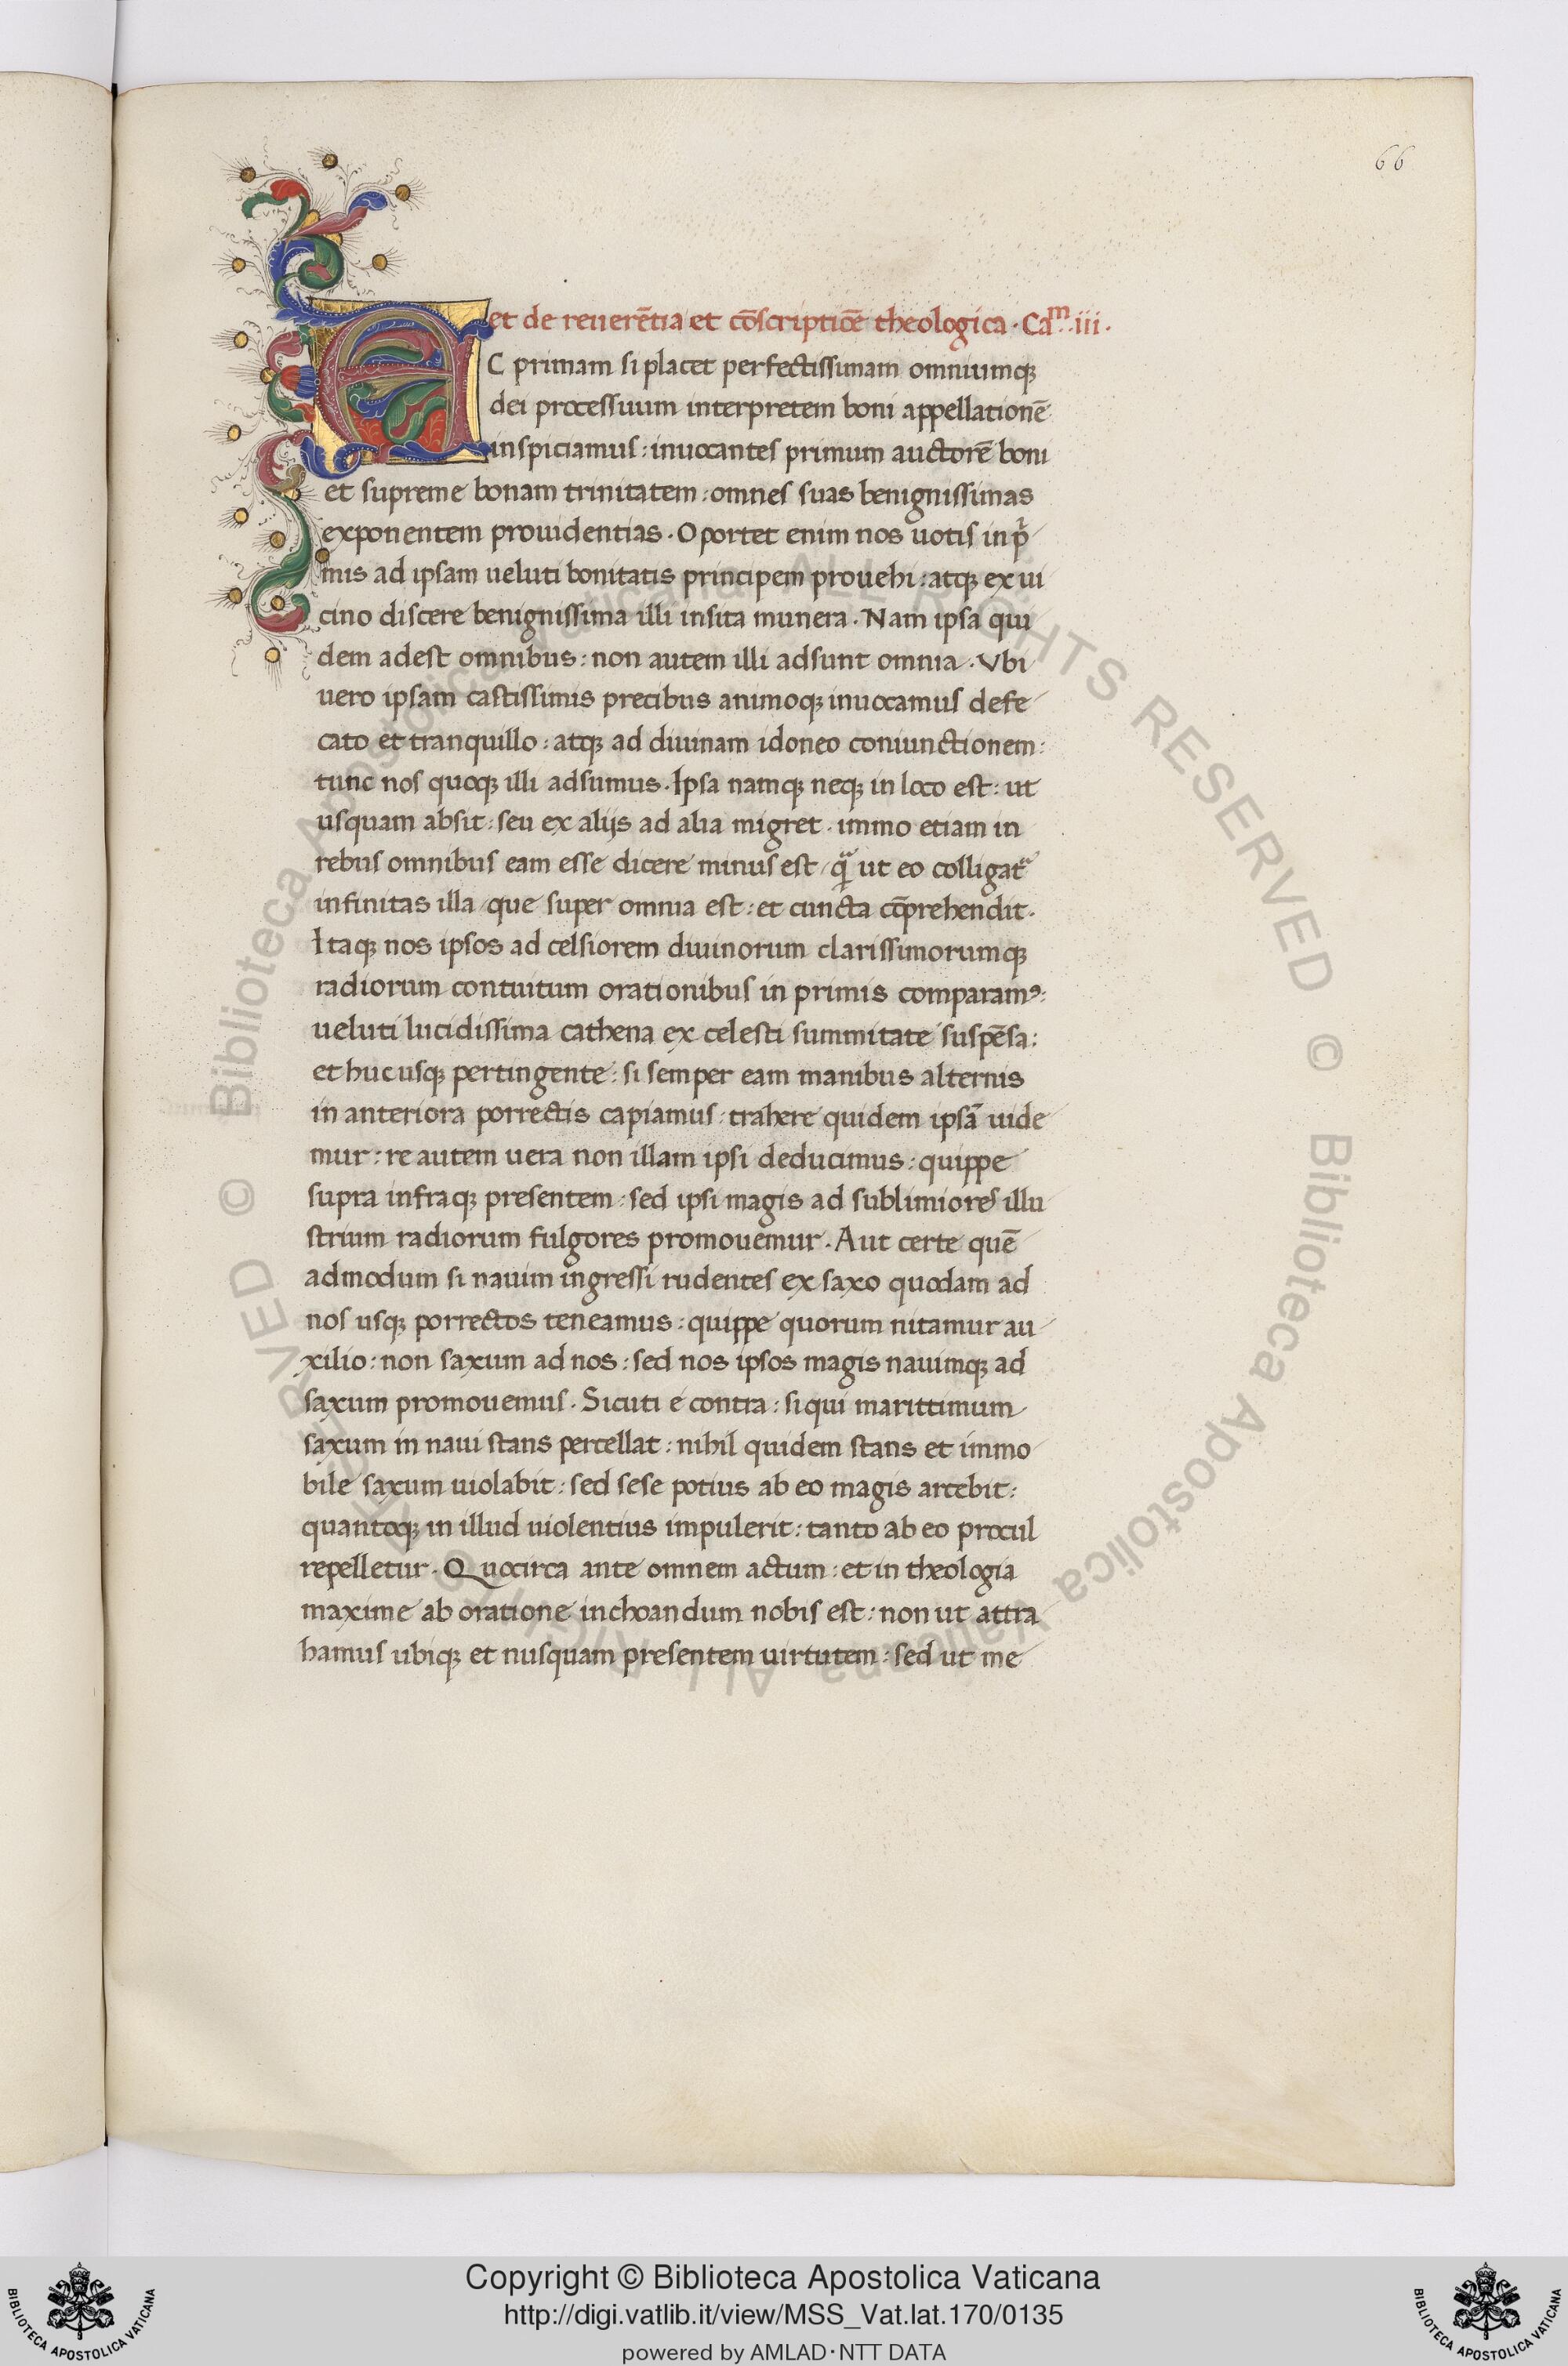 66
et de reuerẽtia et cõscriptiõe theologica · Caᵐ · iii ·
AC primam si placet perfectissimam omniumqꝫ
dei processuum interpretem boni appellationẽ
inspiciamus : inuocantes primum auctorẽ boni
et supreme bonam trinitatem : omnes suas benignissimas
exponentem prouidentias · Oportet enim nos uotis in pⁱ
mis ad ipsam ueluti bonitatis principem prouehi : atqꝫ ex ui
cino discere benignissima illi insita munera · Nam ipsa qui
dem adest omnibus : non autem illi adsunt omnia · Vbi
uero ipsam castissimis precibus animoqꝫ inuocamus defe
cato et tranquillo : atqꝫ ad diuinam idoneo coniunctionem :
tunc nos quoqꝫ illi adsumus · Ipsa namqꝫ neqꝫ in loco est : ut
usquam absit : seu ex alijs ad alia migret · immo etiam in
rebus omnibus eam esse dicere minus est / qᷓ ut eo colligatᷣ
infinitas illa / que super omnia est : et cuncta cõprehendit ·
Itaqꝫ nos ipsos ad celsiorem diuinorum clarissimorumqꝫ
radiorum contuitum orationibus in primis comparamꝰ :
ueluti lucidissima cathena ex celesti summitate suspẽsa :
et huc usqꝫ pertingente : si semper eam manibus alternis
in anteriora porrectis capiamus : trahere quidem ipsã uide
mur : re autem uera non illam ipsi deducimus : quippe
supra infraqꝫ presentem : sed ipsi magis ad sublimiores illu
strium radiorum fulgores promouemur · Aut certe quẽ
admodum si nauim ingressi rudentes ex saxo quodam ad
nos usqꝫ porrectos teneamus : quippe quorum nitamur au
xilio : non saxum ad nos : sed nos ipsos magis nauimqꝫ ad
saxum promouemus · Sicuti e contra : si qui marittimum
saxum in naui stans percellat : nihil quidem stans et immo
bile saxum uiolabit : sed sese potius ab eo magis arcebit :
quantoqꝫ in illud uiolentius impulerit : tanto ab eo procul
repelletur · Quocirca ante omnem actum : et in theologia
maxime ab oratione inchoandum nobis est : non ut attra
hamus ubiqꝫ et nusquam presentem uirtutem : sed ut me
© Biblioteca Apostolica Vaticana ALL RIGHTS RESERVED © Biblioteca Apostolica Vaticana ALL RIGHTS RESERVED
Copyright © Biblioteca Apostolica Vaticana
http://digi.vatlib.it/view/MSS_Vat.lat.170/0135
powered by AMLAD·NTT DATA
BIBLIOTECA APOSTOLICA VATICANA
BIBLIOTECA APOSTOLICA VATICANA